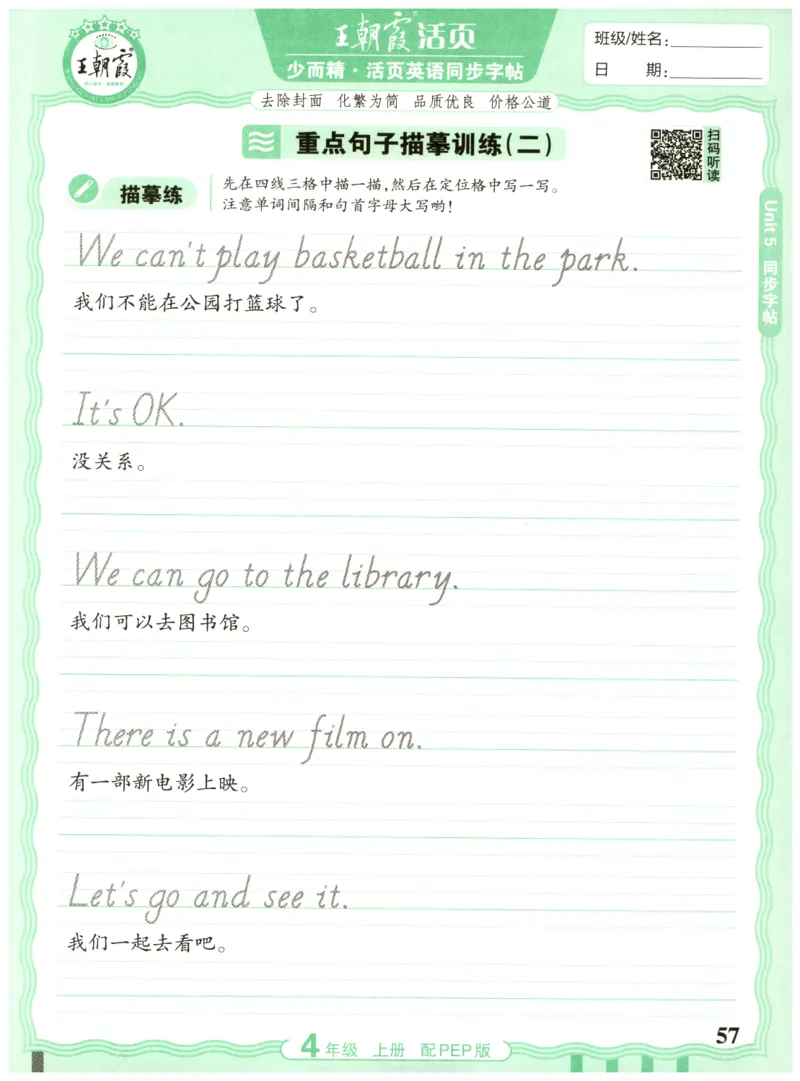 王朝霞®
王朝霞®活页
少而精·活页英语同步字帖
班级/姓名:
日 期:
去除封面 化繁为简 品质优良 价格公道
重点句子描摹训练(二)
扫码听读
描摹练
先在四线三格中描一描,然后在定位格中写一写。
注意单词间隔和句首字母大写哟!
Unit 5 同步字帖
We can't play basketball in the park.
我们不能在公园打篮球了。
It's OK.
没关系。
We can go to the library.
我们可以去图书馆。
There is a new film on.
有一部新电影上映。
Let's go and see it.
我们一起去看吧。
57
4年级 上册 配PEP版